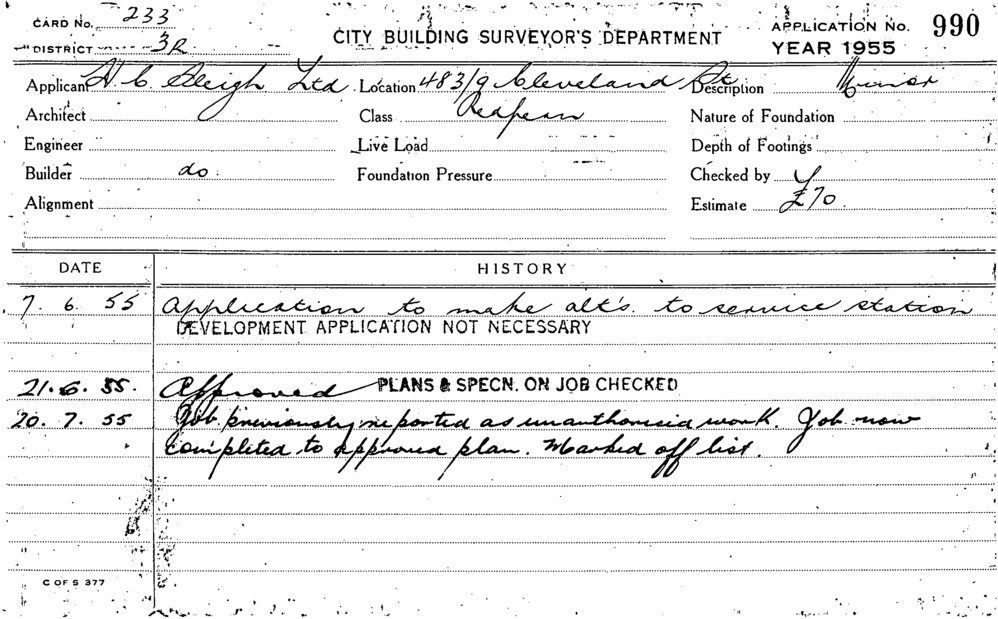 CARD No. 233
DISTRICT 3R
CITY BUILDING SURVEYOR'S DEPARTMENT
APPLICATION No. 990
YEAR 1955
Applicant H. C. Sleigh Ltd. Location 483/9 Cleveland St. Description Minor
Architect Class Redfern Nature of Foundation
Engineer Live Load Depth of Footings
Builder do. Foundation Pressure Checked by
Alignment Estimate £70.
DATE HISTORY
7. 6. 55 Application to make alt's. to service station
DEVELOPMENT APPLICATION NOT NECESSARY
21. 6. 55. Approved PLANS & SPECN. ON JOB CHECKED
20. 7. 55 Job previously reported as unauthorised work. Job now
completed to approved plan. Marked off list.
C OF S 377